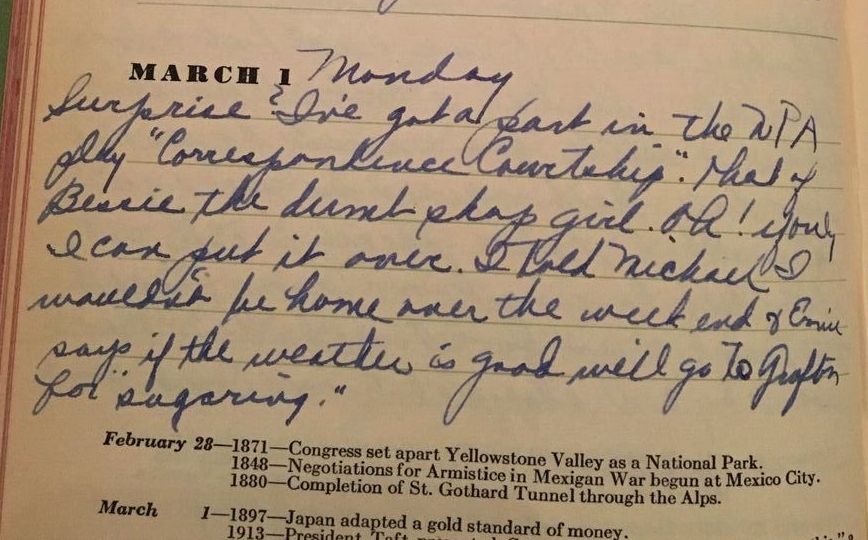 MARCH 1 Monday
Surprise! I've got a part in the WPA
play "Correspondence Courtship". That of
Bessie the dumb shop girl. Oh! if only
I can put it over. I told Michael I
wouldn't be home over the week end & Ernie
says if the weather is good we'll go to Grafton
for "sugaring."
February 28—1871—Congress set apart Yellowstone Valley as a National Park.
1848—Negotiations for Armistice in Mexigan War begun at Mexico City.
1880—Completion of St. Gothard Tunnel through the Alps.
March 1—1897—Japan adapted a gold standard of money.
1913—President Taft